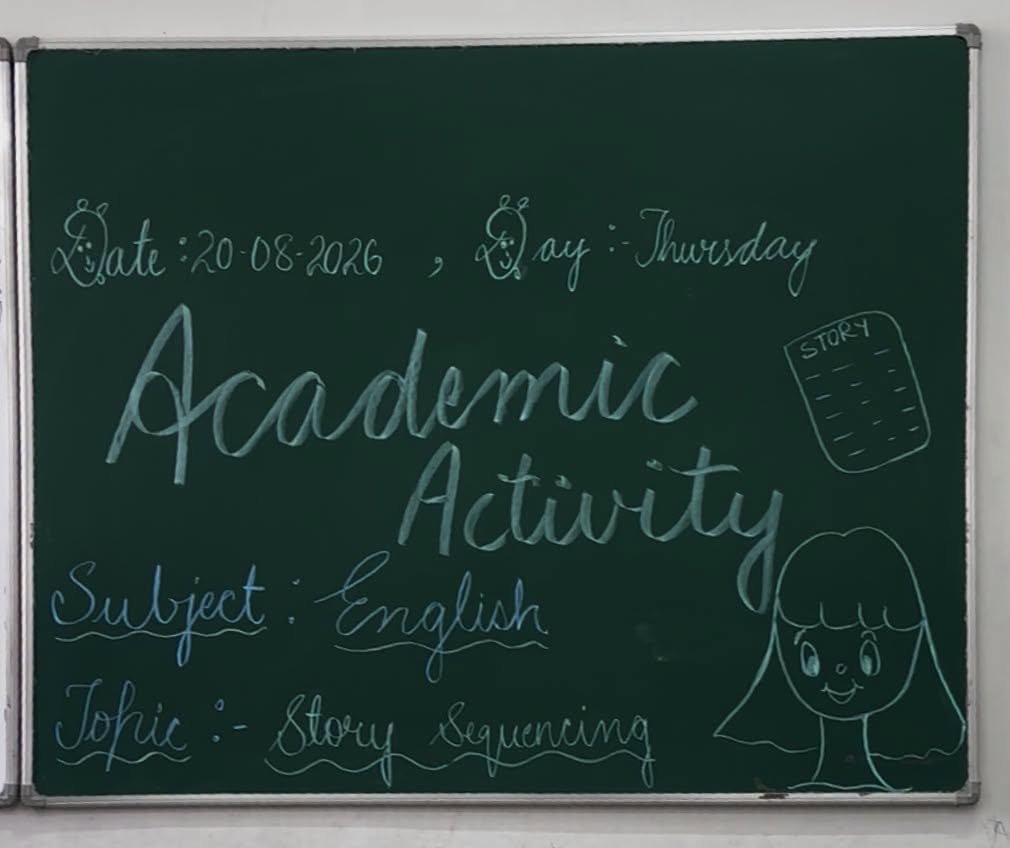 Date :20-08-2026 , Day :- Thursday
Academic
STORY
Activity
Subject : English
Topic :- Story Sequencing